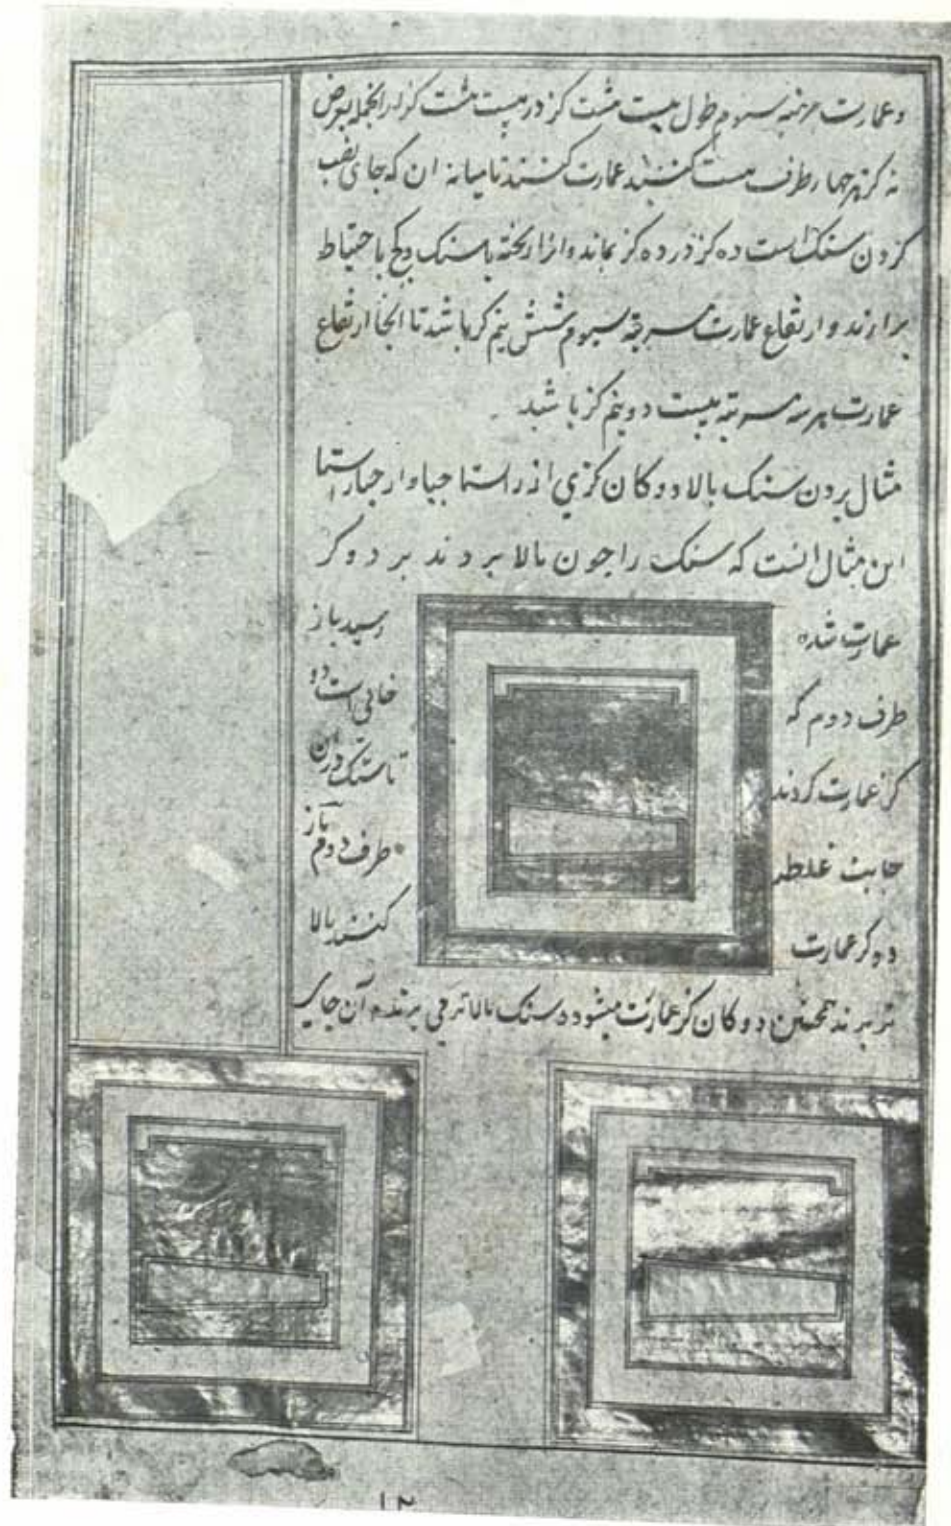 و عمارت مرتبه سیوم طول بیست هشت کز در بیست هشت کز از انجمله بعرض
نه کز هر چهار طرف هست کنند عمارت کنند تا میانه ان که جای نصب
کردن سنک است ده کز در ده کز بماند و انرا ریخته با سنک و کچ باحتیاط
برارند و ارتفاع عمارت مرتبه سیوم شش نیم کز باشد تا انجا ارتفاع
عمارت هر سه مرتبه بیست دو نیم کز باشد
مثال بردن سنک بالا دوکان کزی از راستا جپا و از جپا راستا
این مثال انست که سنک را جون بالا بردند بر دو کز
عمارت شده رسید باز
طرف دوم که خالی است دو
کز عمارت کردند تا سنک دران
جانب غلطد باز طرف دوم
دو کز عمارت کنند بالا
تر برند همجنین دوکان کز عمارت میشود و سنک بالاتر می برند و آن جای
۱۲